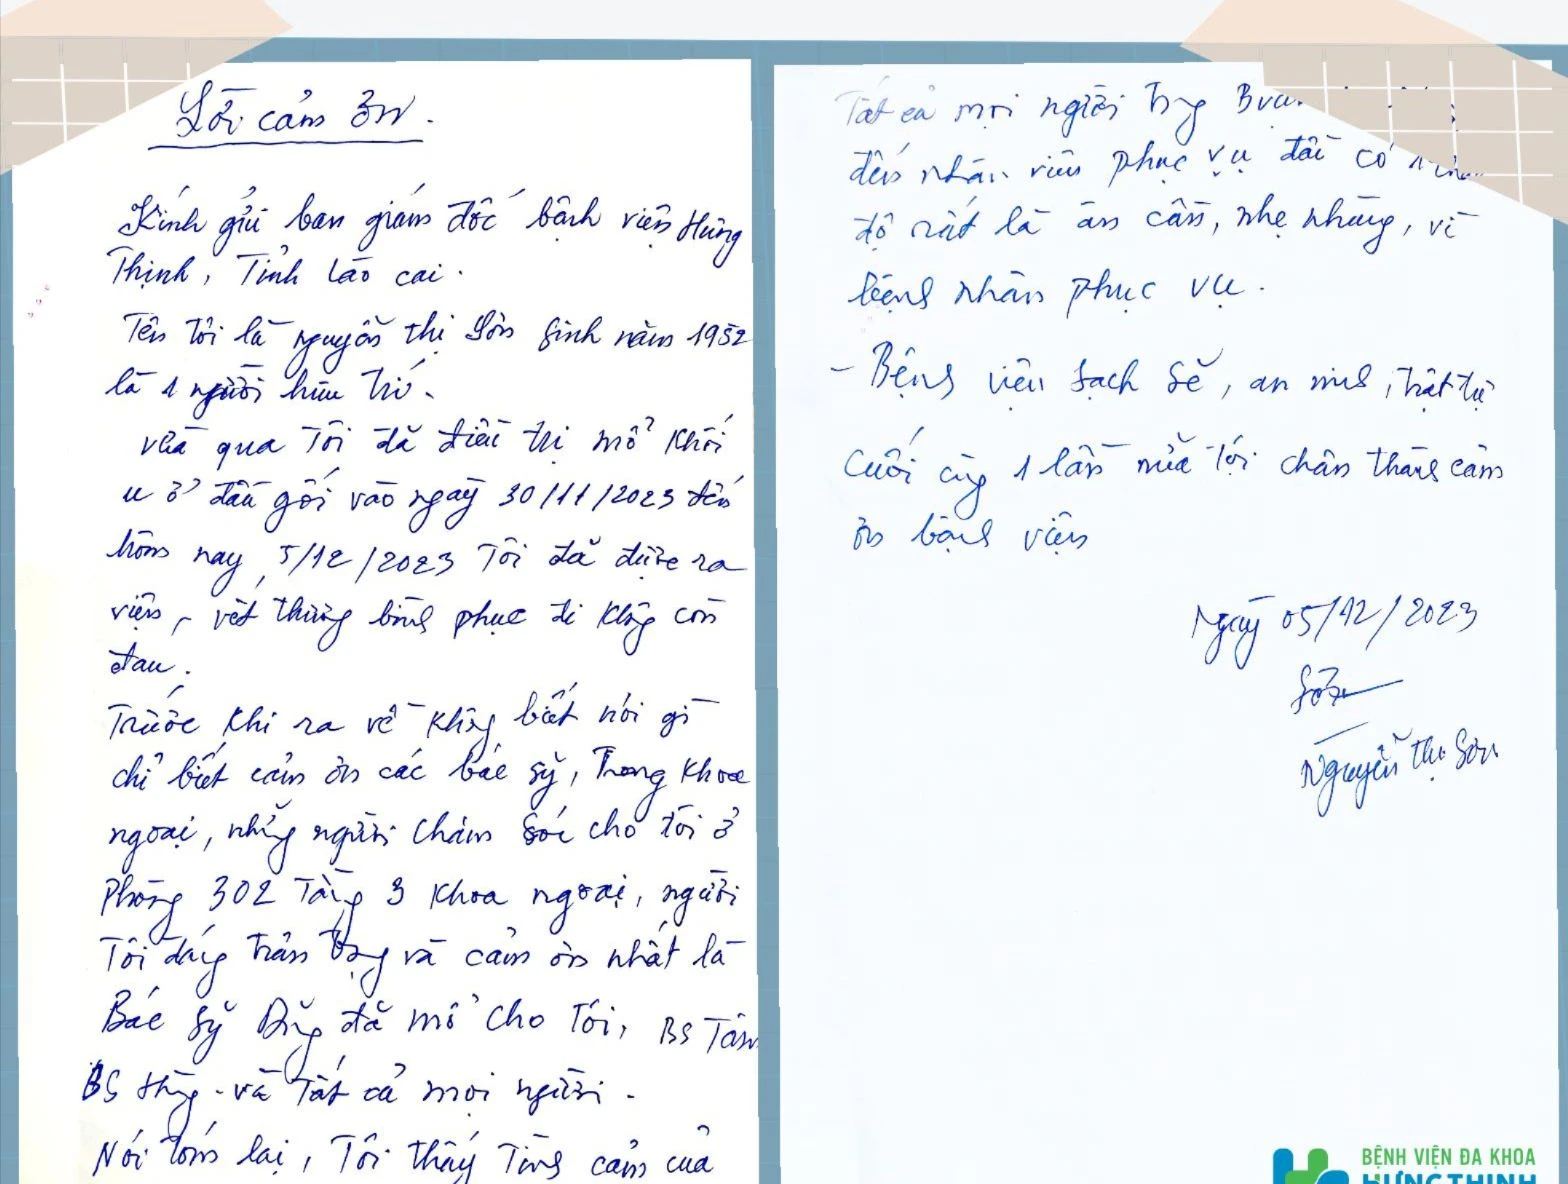 Lời cảm ơn.
Kính gửi ban giám đốc bệnh viện Hưng
Thịnh, Tỉnh Lào cai.
Tên tôi là nguyễn thị Sơn sinh năm 1952
là 1 người hưu trí.
vừa qua Tôi đã điều trị mổ khối
u ở đầu gối vào ngày 30/11/2023 đến
hôm nay, 5/12/2023 Tôi đã được ra
viện, vết thương bình phục đi không còn
đau.
Trước khi ra về không biết nói gì
chỉ biết cảm ơn các bác sỹ, Trong khoa
ngoại, những người chăm sóc cho tôi ở
Phòng 302 Tầng 3 khoa ngoại, người
Tôi đáng trân trọng và cảm ơn nhất là
Bác sỹ đã mổ cho Tôi, BS Tâm
BS và Tất cả mọi người.
Nói tóm lại, Tôi thấy Tình cảm của
Tất cả mọi người trong
đến nhân viên phục vụ đều có 1
độ rất là ân cần, nhẹ nhàng, vì
bệnh nhân phục vụ.
- Bệnh viện sạch sẽ, an ninh, trật tự
Cuối cùng 1 lần nữa tôi chân thành cảm
ơn bệnh viện
Ngày 05/12/2023
Sơn
Nguyễn Thị Sơn
BỆNH VIỆN ĐA KHOA
HƯNG THỊNH